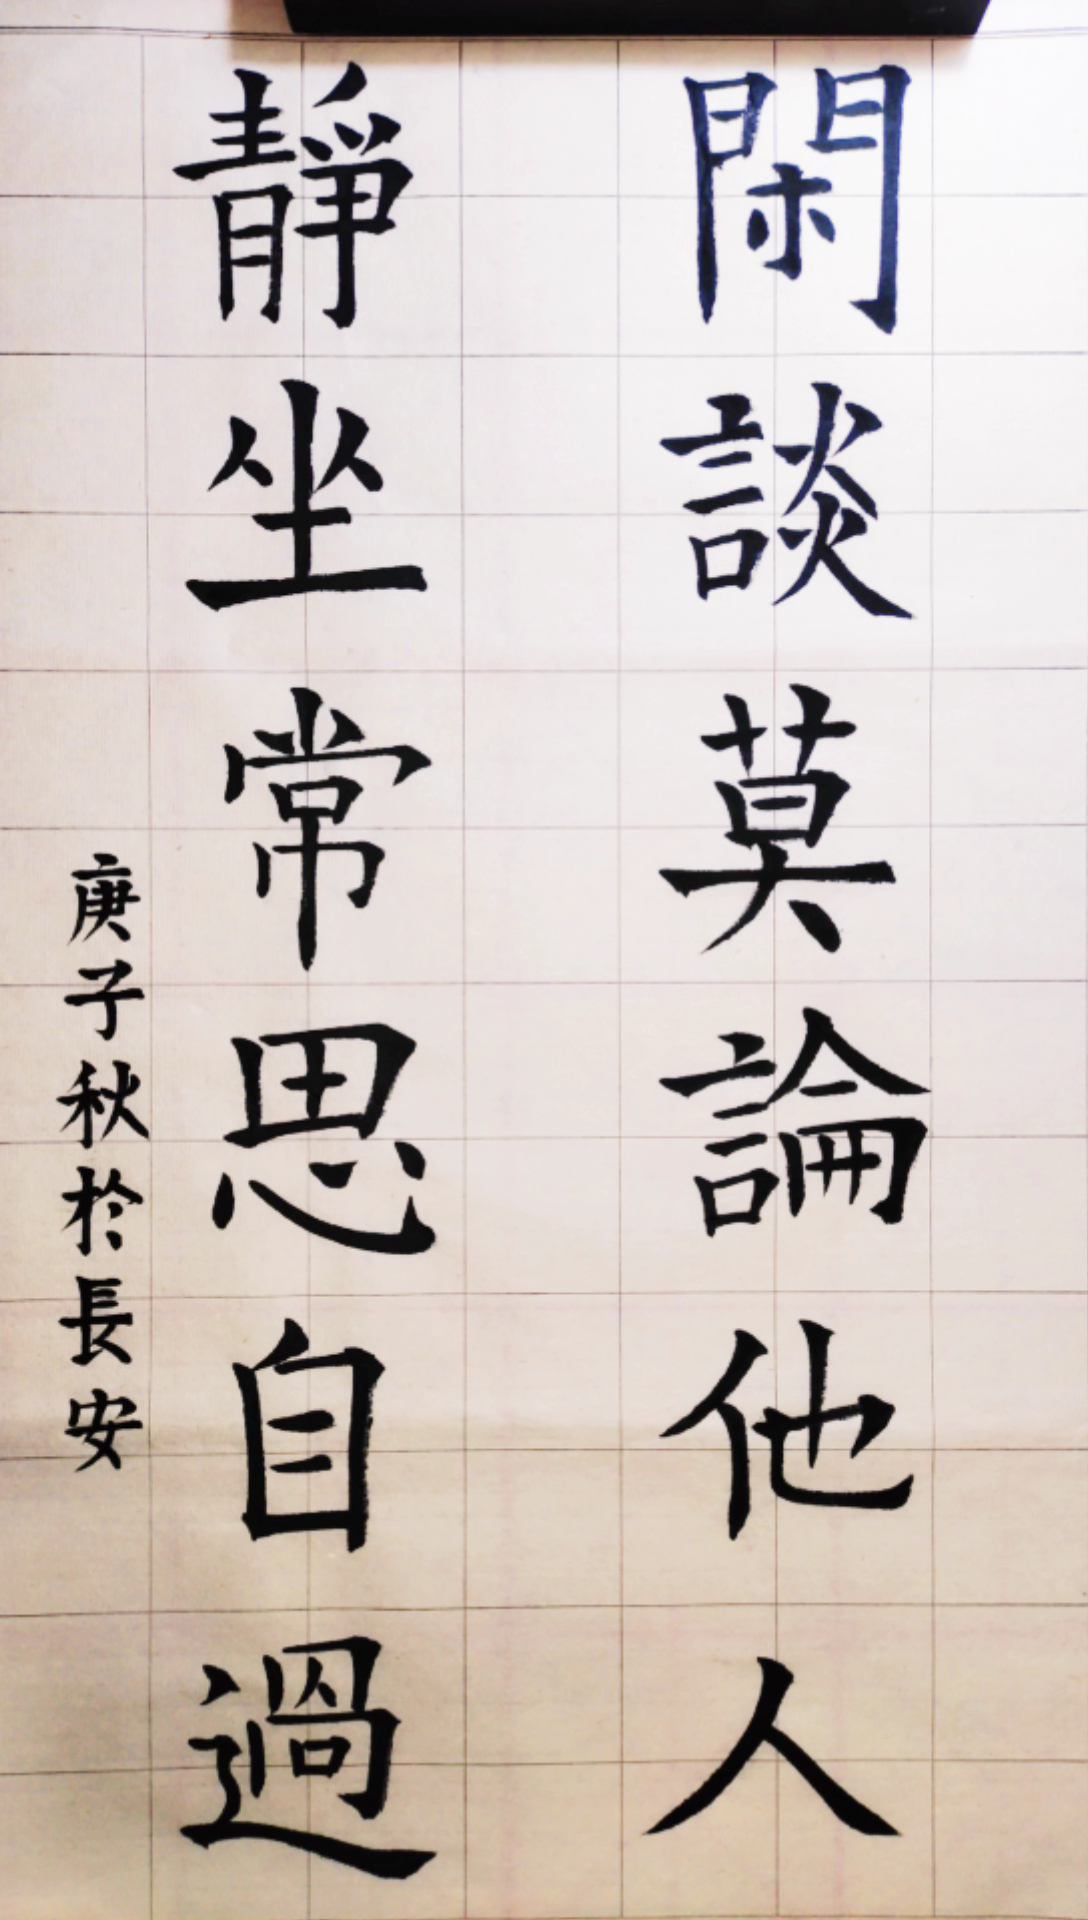 閑談莫論他人
靜坐常思自過
庚子秋於長安